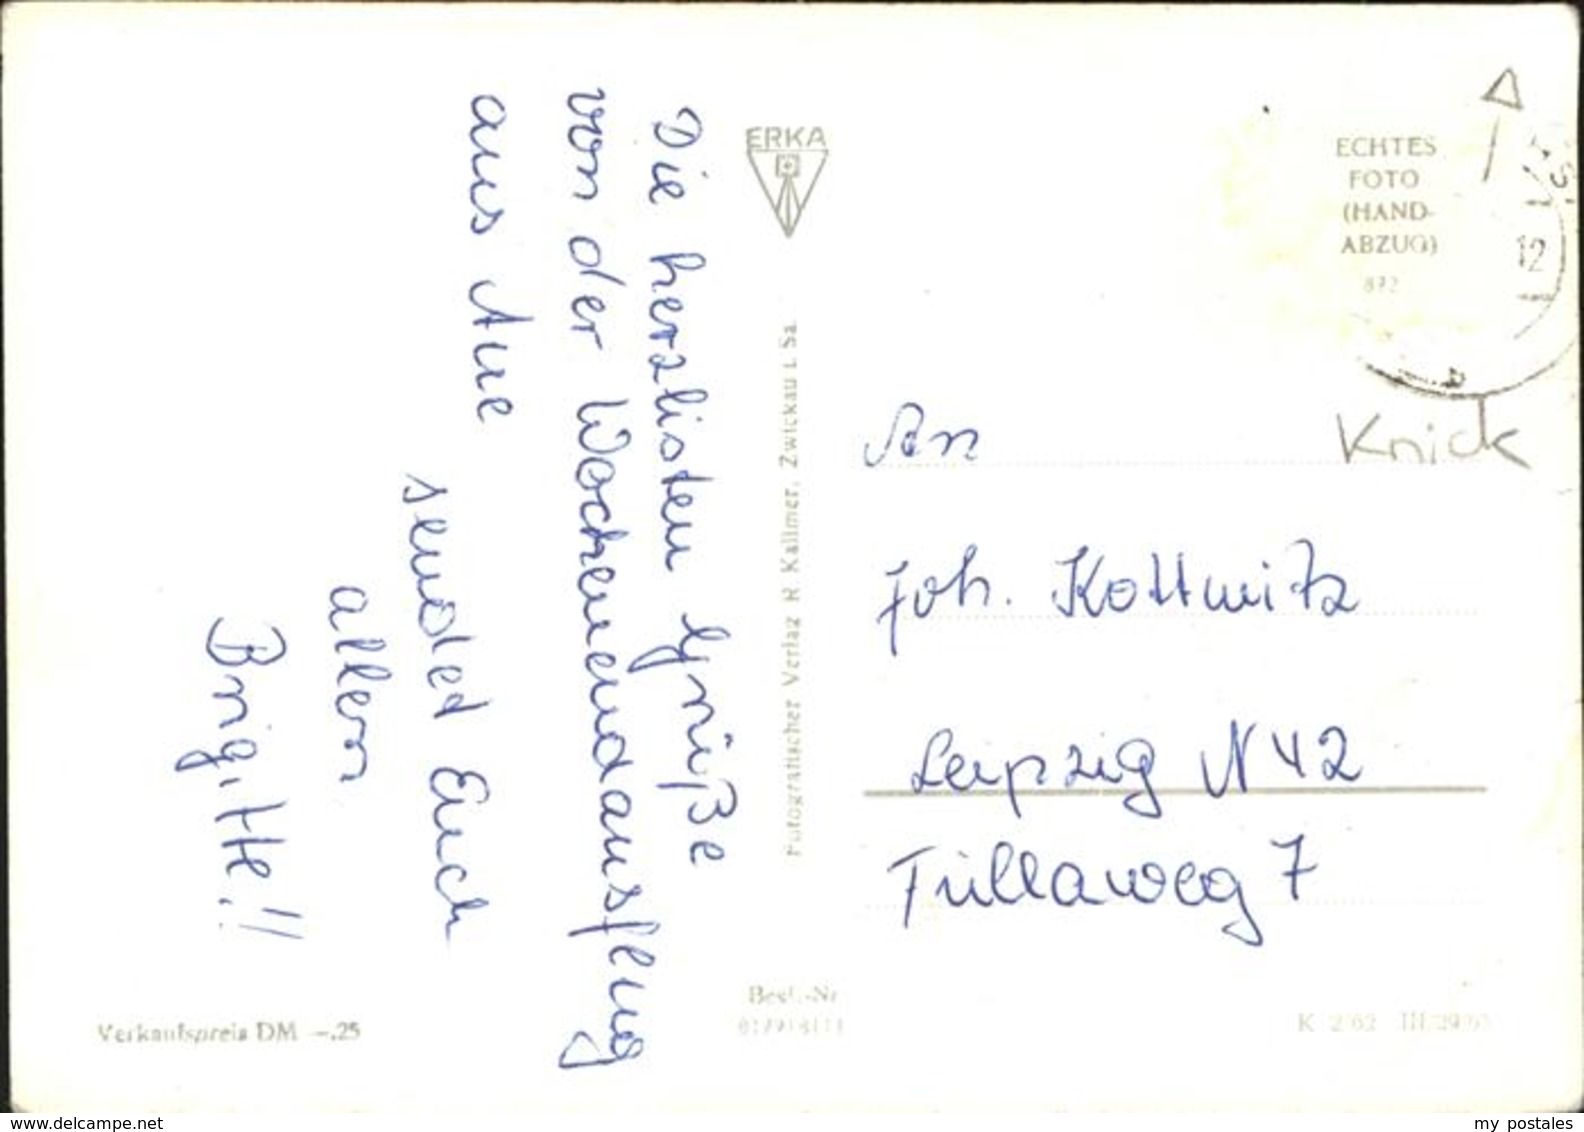 Die herzlisten Grüße
von der Wochenendausflug
aus Aue
sendet Euch
allen
Brigitte!!
ERKA
Fotografischer Verlag R Kallmer, Zwickau i. Sa.
ECHTES
FOTO
(HAND-
ABZUG)
872
12
Knick
An
Joh. Kottwitz
Leipzig N 42
Tüllaweg 7
Verkaufspreis DM -.25
Best.-Nr
K 2/62 III/29/63
www.delcampe.net
my postales